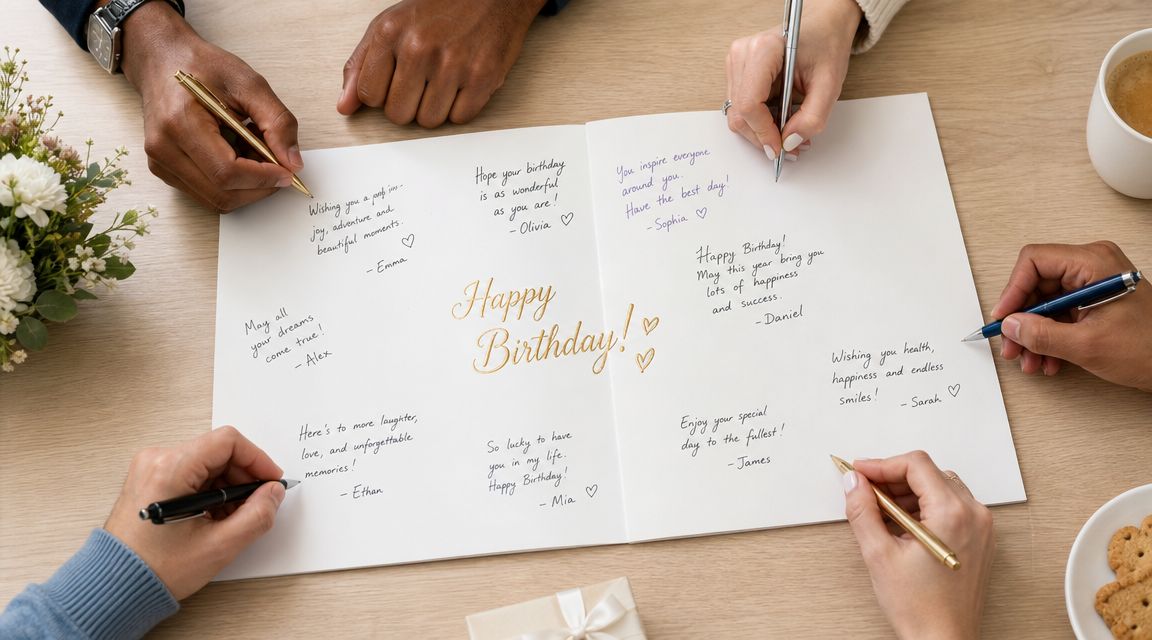 Wishing you a
joy, adventure and
beautiful moments. ♡
- Emma
Hope your birthday
is as wonderful
as you are!
- Olivia ♡
May all
your dreams
come true!
- Alex
Happy
Birthday! ♡
♡
Here's to more laughter,
love, and unforgettable
memories!
- Ethan
So lucky to have
you in my life.
Happy Birthday!
- Mia ♡
You inspire everyone
around you.
Have the best day!
- Sophia ♡
Happy Birthday!
May this year bring you
lots of happiness
and success.
- Daniel
Wishing you health,
happiness and endless
smiles!
- Sarah ♡
Enjoy your special
day to the fullest!
- James